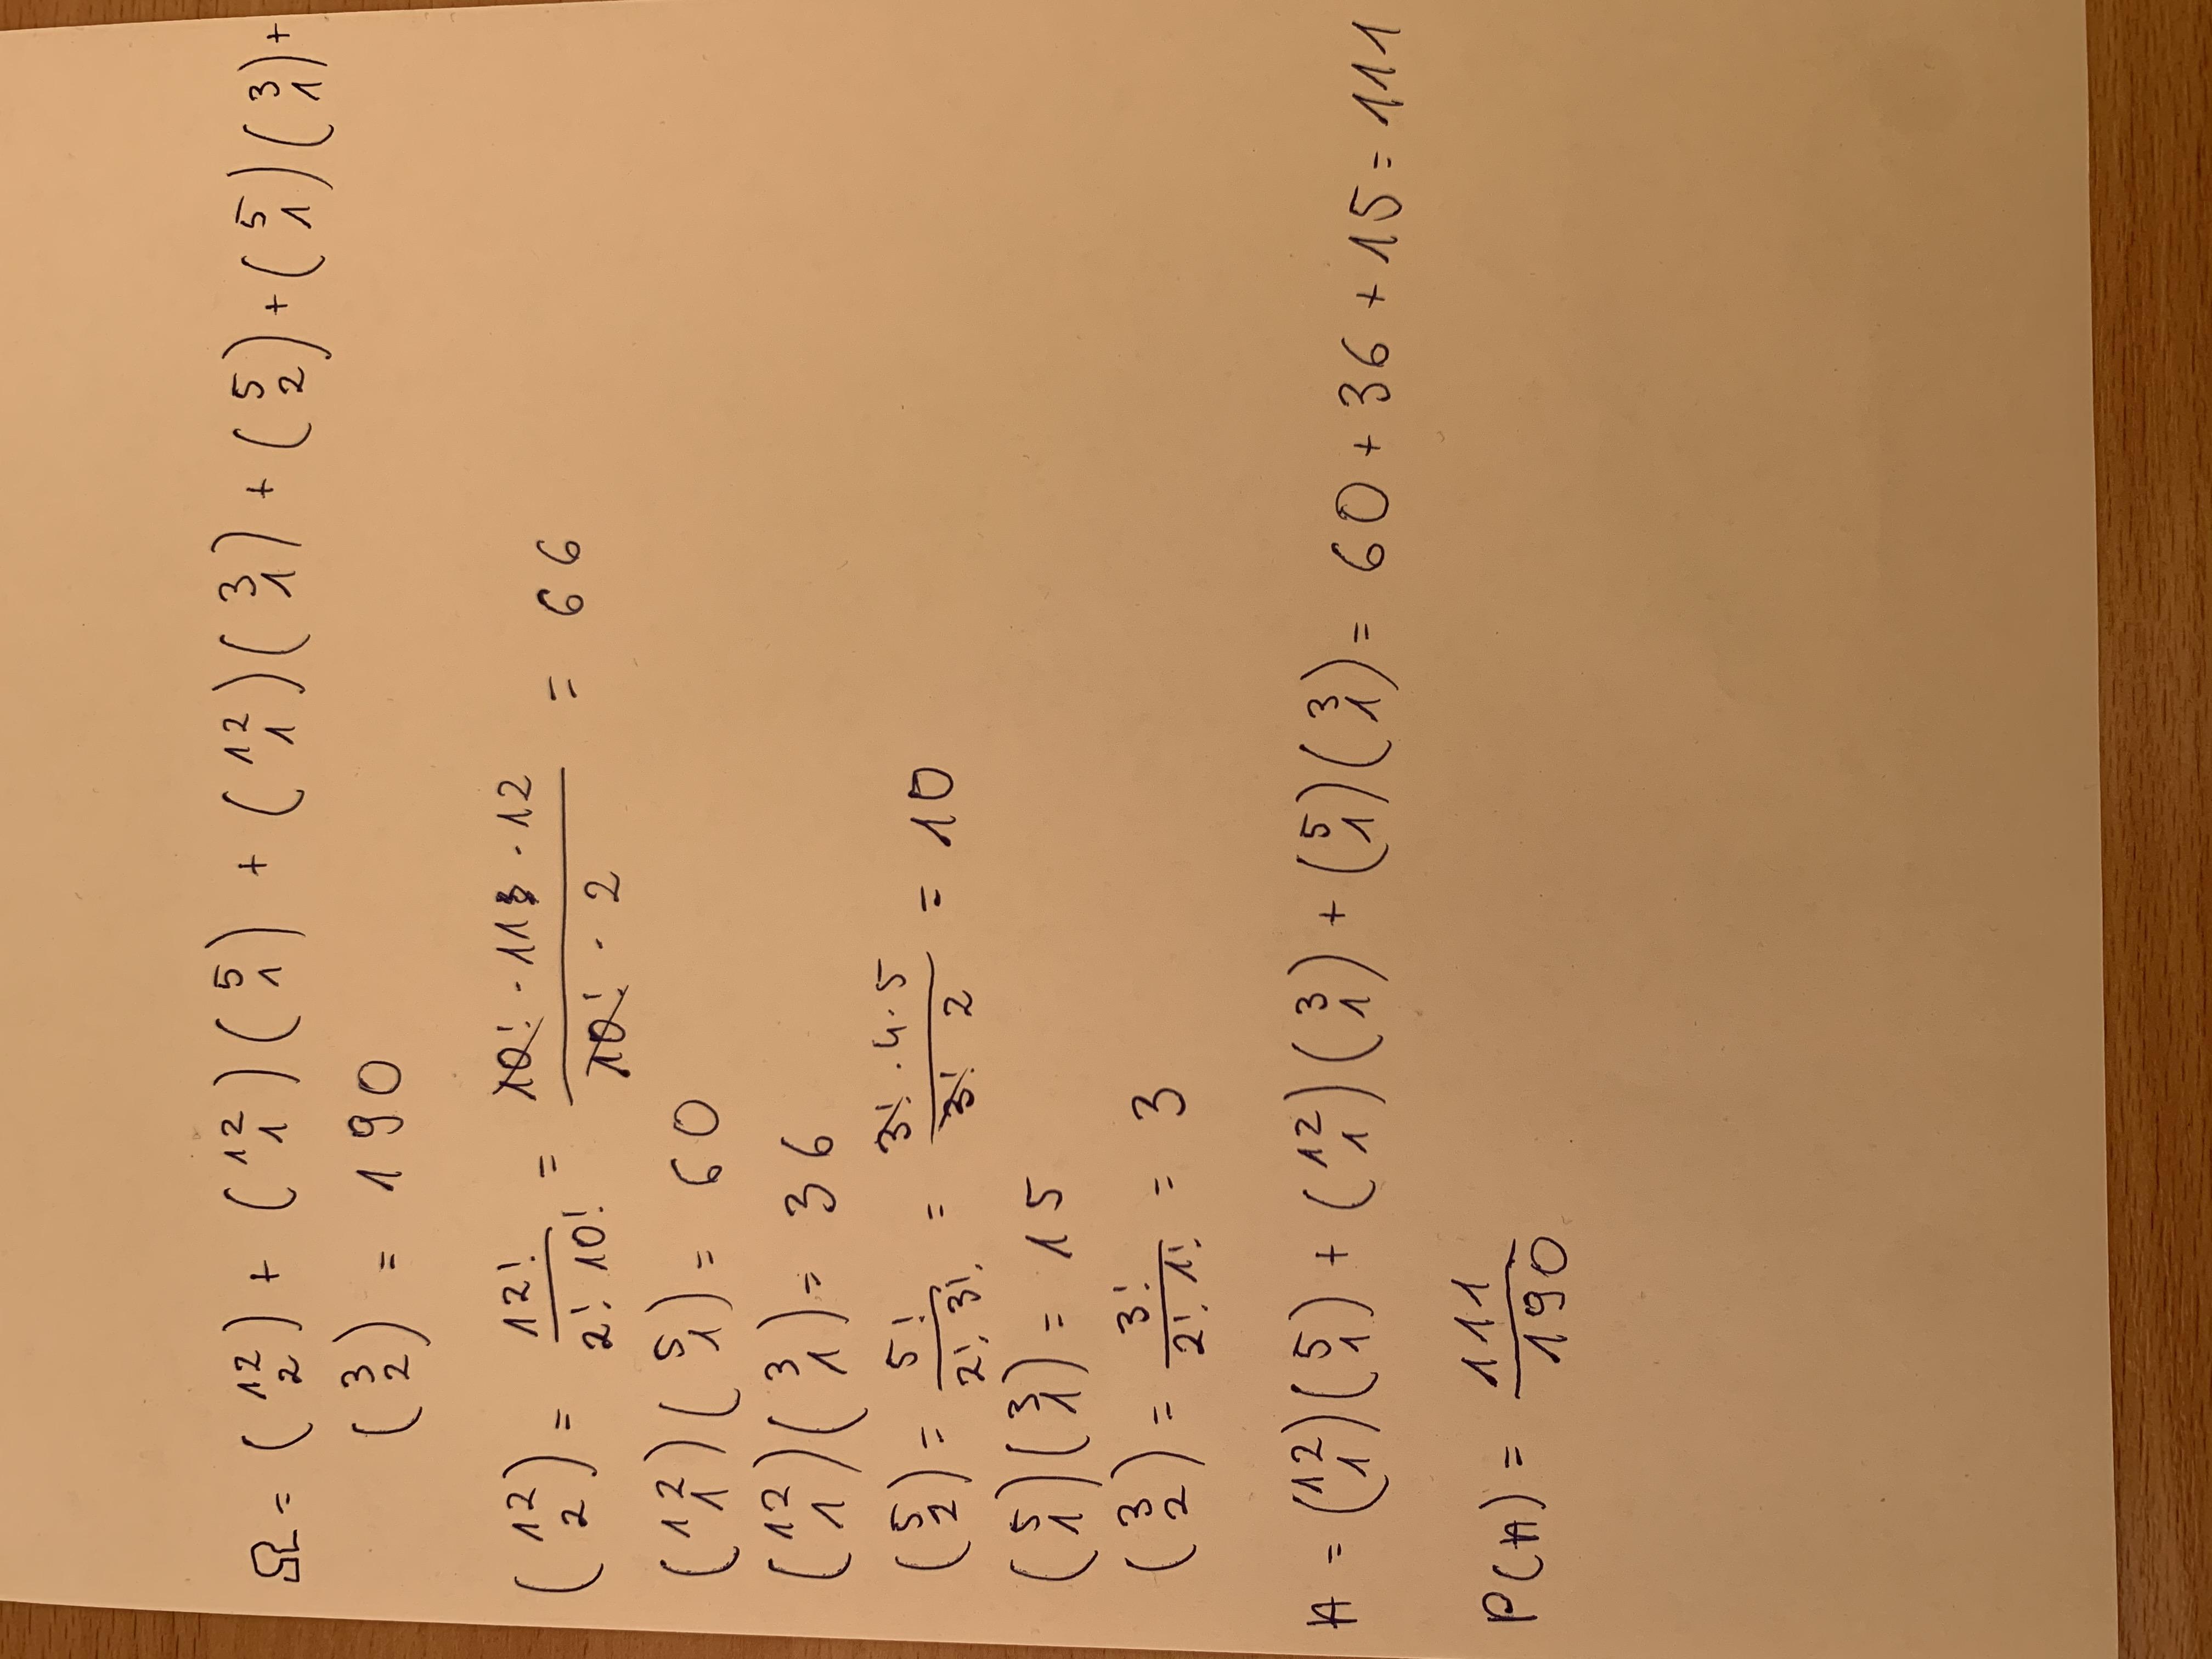 Ω = (12 2) + (12 1)(5 1) + (12 1)(3 1) + (5 2) + (5 1)(3 1) +
(3 2) = 190
(12 2) = 12!/2!·10! = 10!·11·12/10!·2 = 66
(12 1)(5 1) = 60
(12 1)(3 1) = 36
(5 2) = 5!/2!·3! = 3!·4·5/3!·2 = 10
(5 1)(3 1) = 15
(3 2) = 3!/2!·1! = 3
A = (12 1)(5 1) + (12 1)(3 1) + (5 1)(3 1) = 60 + 36 + 15 = 111
P(A) = 111/190